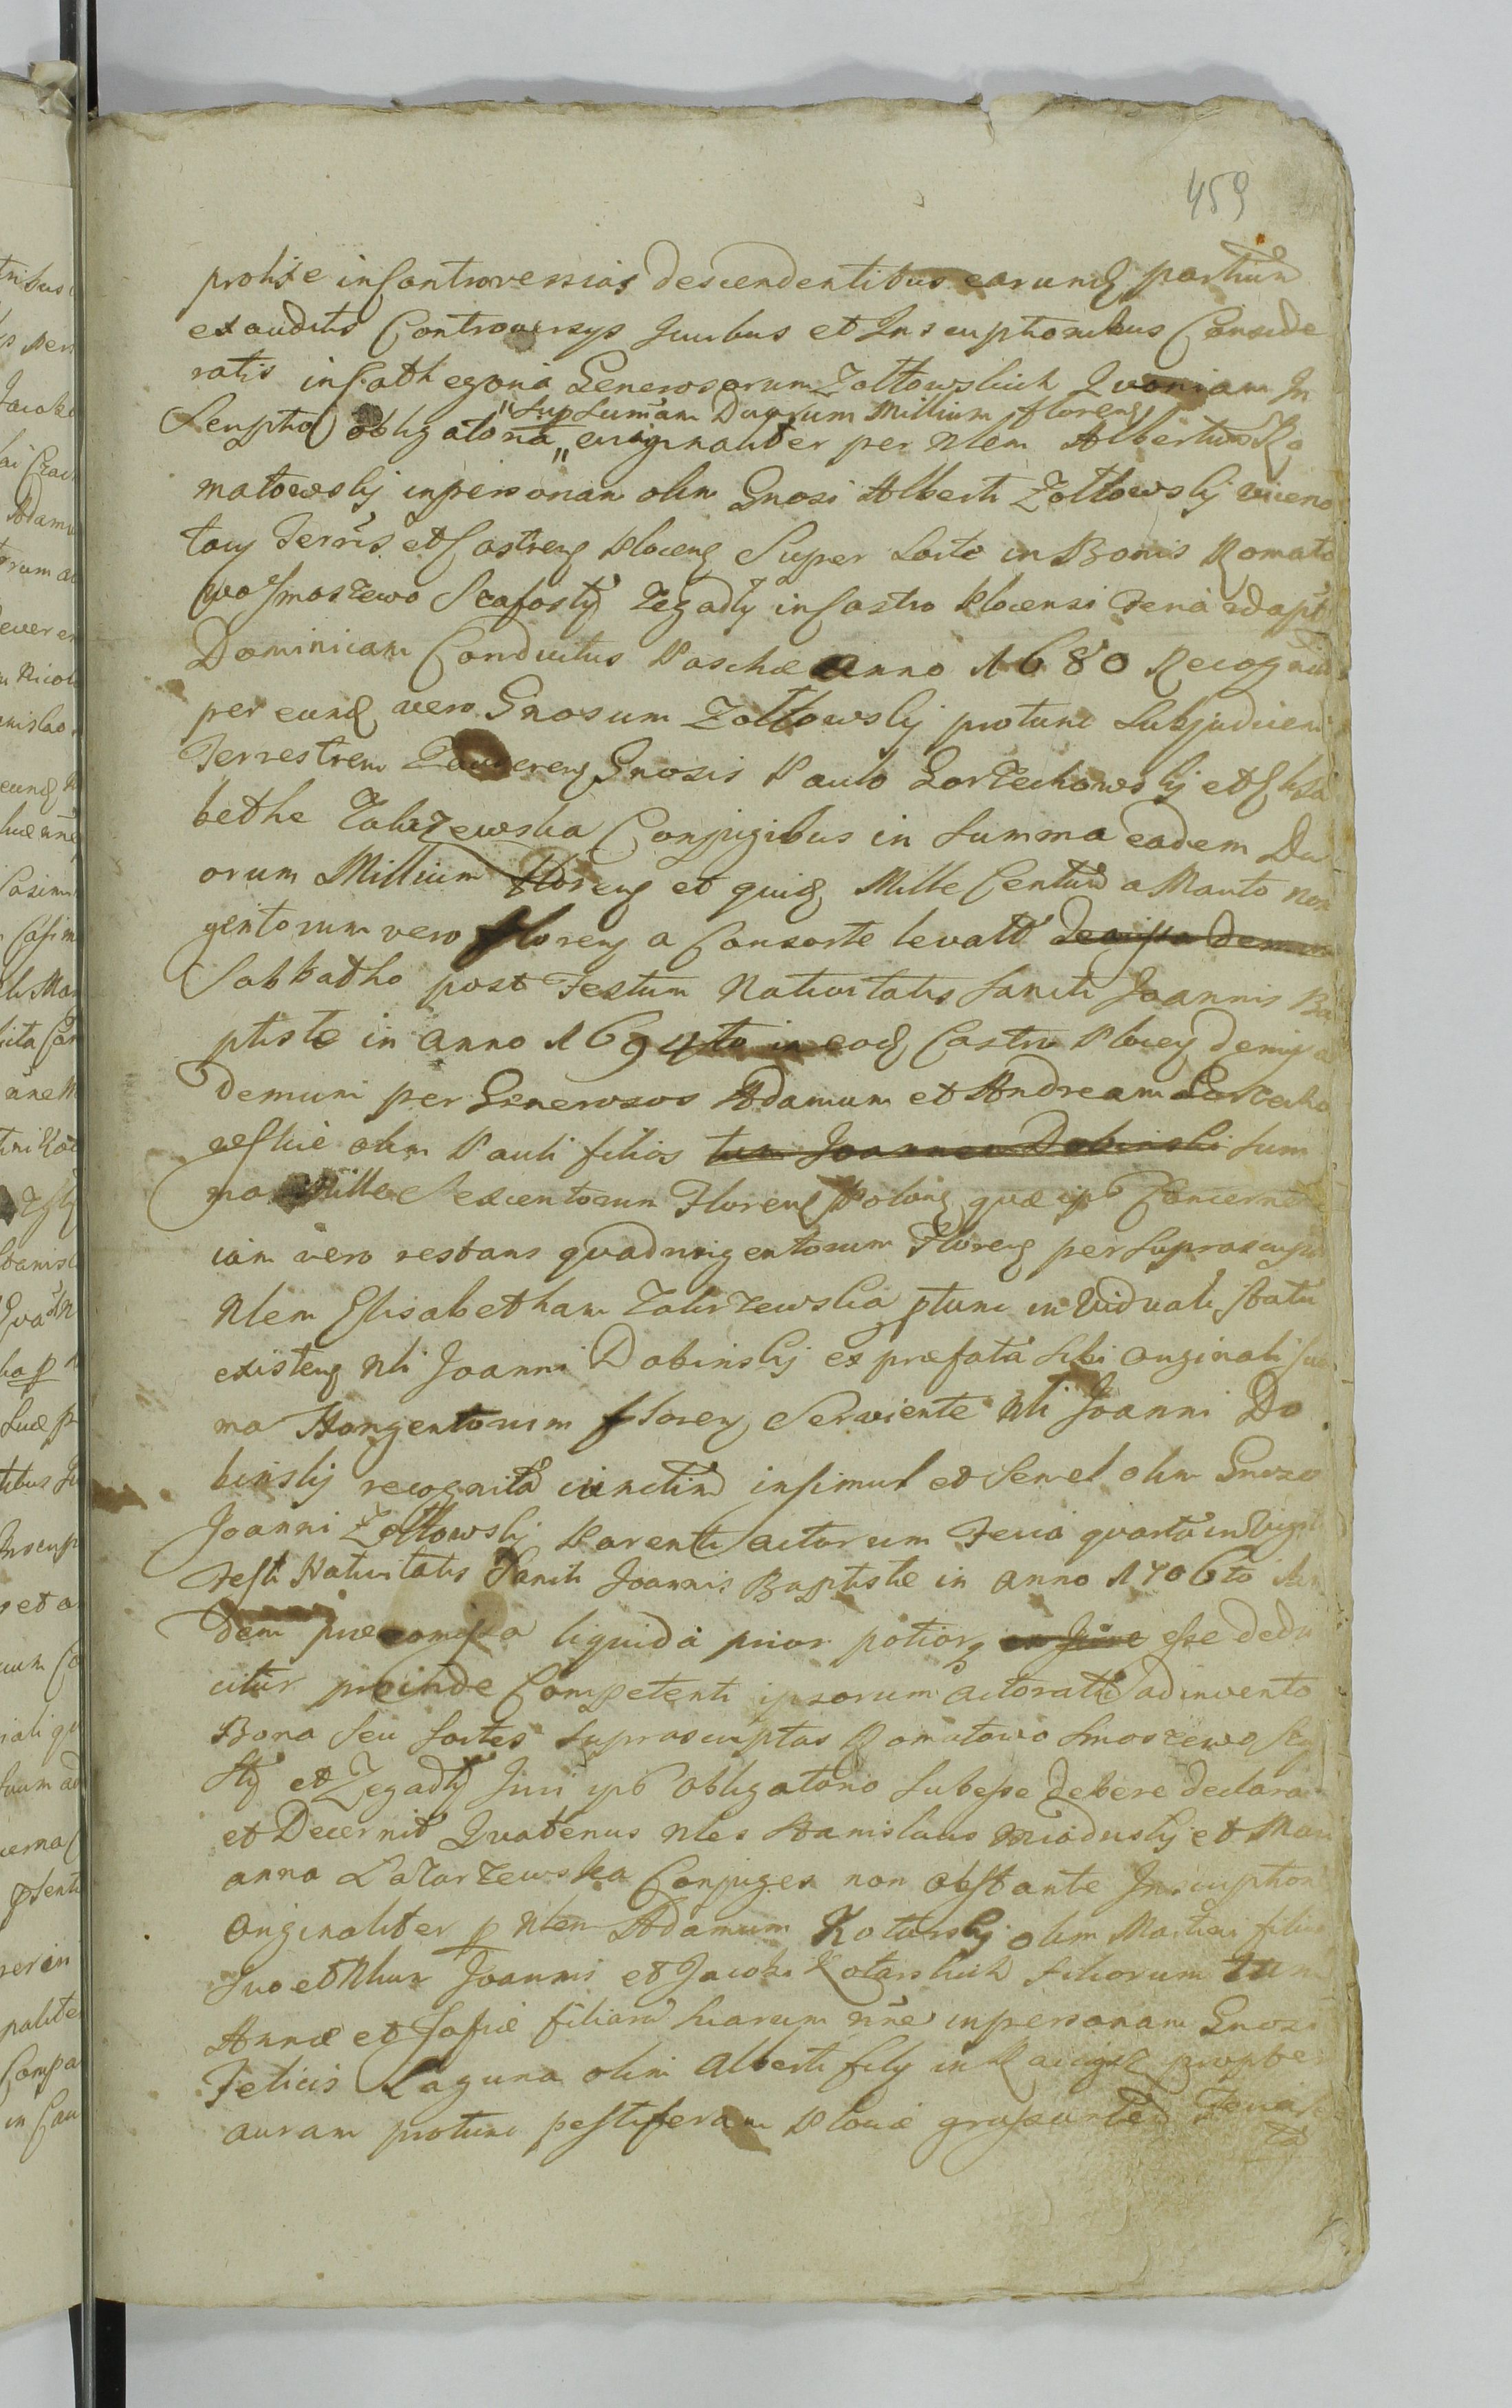 459
prolixe in Controversias descendentibus earund partium
exauditis Controversys Iuribus et Inscriptionibus Conside
ratis in Cathegoria Generosorum Zołtowskich Quoniam In
"Sup Summam Duorum Millium floreng
Scriptio obligatoria „ originaliter per Nlem Albertum Ro
matowskj in personam olim Gnosi Alberti Zołtowskj viceno
tarij Terris et Castreng Ploceng Super Sorte in Bonis Romato
wo Smoszewo Stafosty Zegadły in Castro Plocensi Feria 2da post
Dominicam Conductus Paschæ Anno 1680 Recognita
per eund vero Gnosum Zołtowskj protunc Subjudicem
Terrestrem Gnosis Paulo Gorzechowskj et Elisa
bethe Zakrzewska Conjugibus in Summa eadem Du
orum Millium Floreng et quid Mille Centum a Marito non
gentorum vero Floreng a Consorte levatt
Sabbatho post Festum Nativitatis Sancti Joannis Ba
ptiste in anno 1694to in eod Castro Plocen
demum per Generosos Adamum et Andream Gorzecho
wskie olim Pauli filios tum Joannem Dobinski Sum
ma Mille Sexcentorum Floreng Polong quæ ips Concernen
iam vero restans quadringentorum Floreng per Suprascriptam
Nlem Elisabetham Zakrzewska ptunc in Viduali Statu
existeng Nli Joanni Dobinskj ex præfata Sibi Originali Sum
ma Nongentorum floreng Serviente Nli Joanni Do
binskj recognita iunctim insimul et Semel olim Gnoso
Joanni Zołtowskj Parenti actorum Feria quarta in Vigilia
Festi Nativitatis Sancti Joannis Baptistæ in anno 1706to
dem præcomissa liquida prior potiorq ex Iure esse dedu
citur proinde Competenti ipsorum actoratu adinvento
Bona Seu Sortes Suprascriptas Romatowo Smoszewo
sty et Zegadły Iuri ips Obligatorio Subesse debere declarat
et Decernit Quatenus Nles Stanislaus Miaduskj et Mari
anna Lazarzewska Conjuges non obstante Inscriptione
Originaliter p Nlem Adamum Kotarskj olim Mathiæ filium
Suo et Nlium Joannis et Jacobi Kotarskich filiorum tum
Annæ et Sofiæ filiarum harum nne in personam Gnosi
Felicis Laguna olim Alberti fily in Raciąż propter
auram protunc pestiferam Plociæ grassante Feria
ta